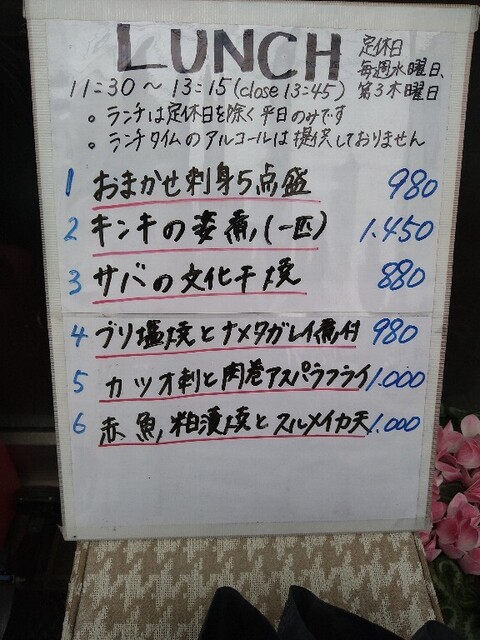 LUNCH
定休日
毎週水曜日、
第3木曜日
11:30 〜 13:15 (close 13:45)
。ランチは定休日を除く平日のみです
。ランチタイムのアルコールは提供しておりません
1 おまかせ刺身5点盛 980
2 キンキの姿煮,(一匹) 1.450
3 サバの文化干焼 880
4 ブリ塩焼とナメタガレイ煮付 980
5 カツオ刺と肉巻アスパラフライ 1.000
6 赤魚,粕漬焼とスルメイカ天 1.000